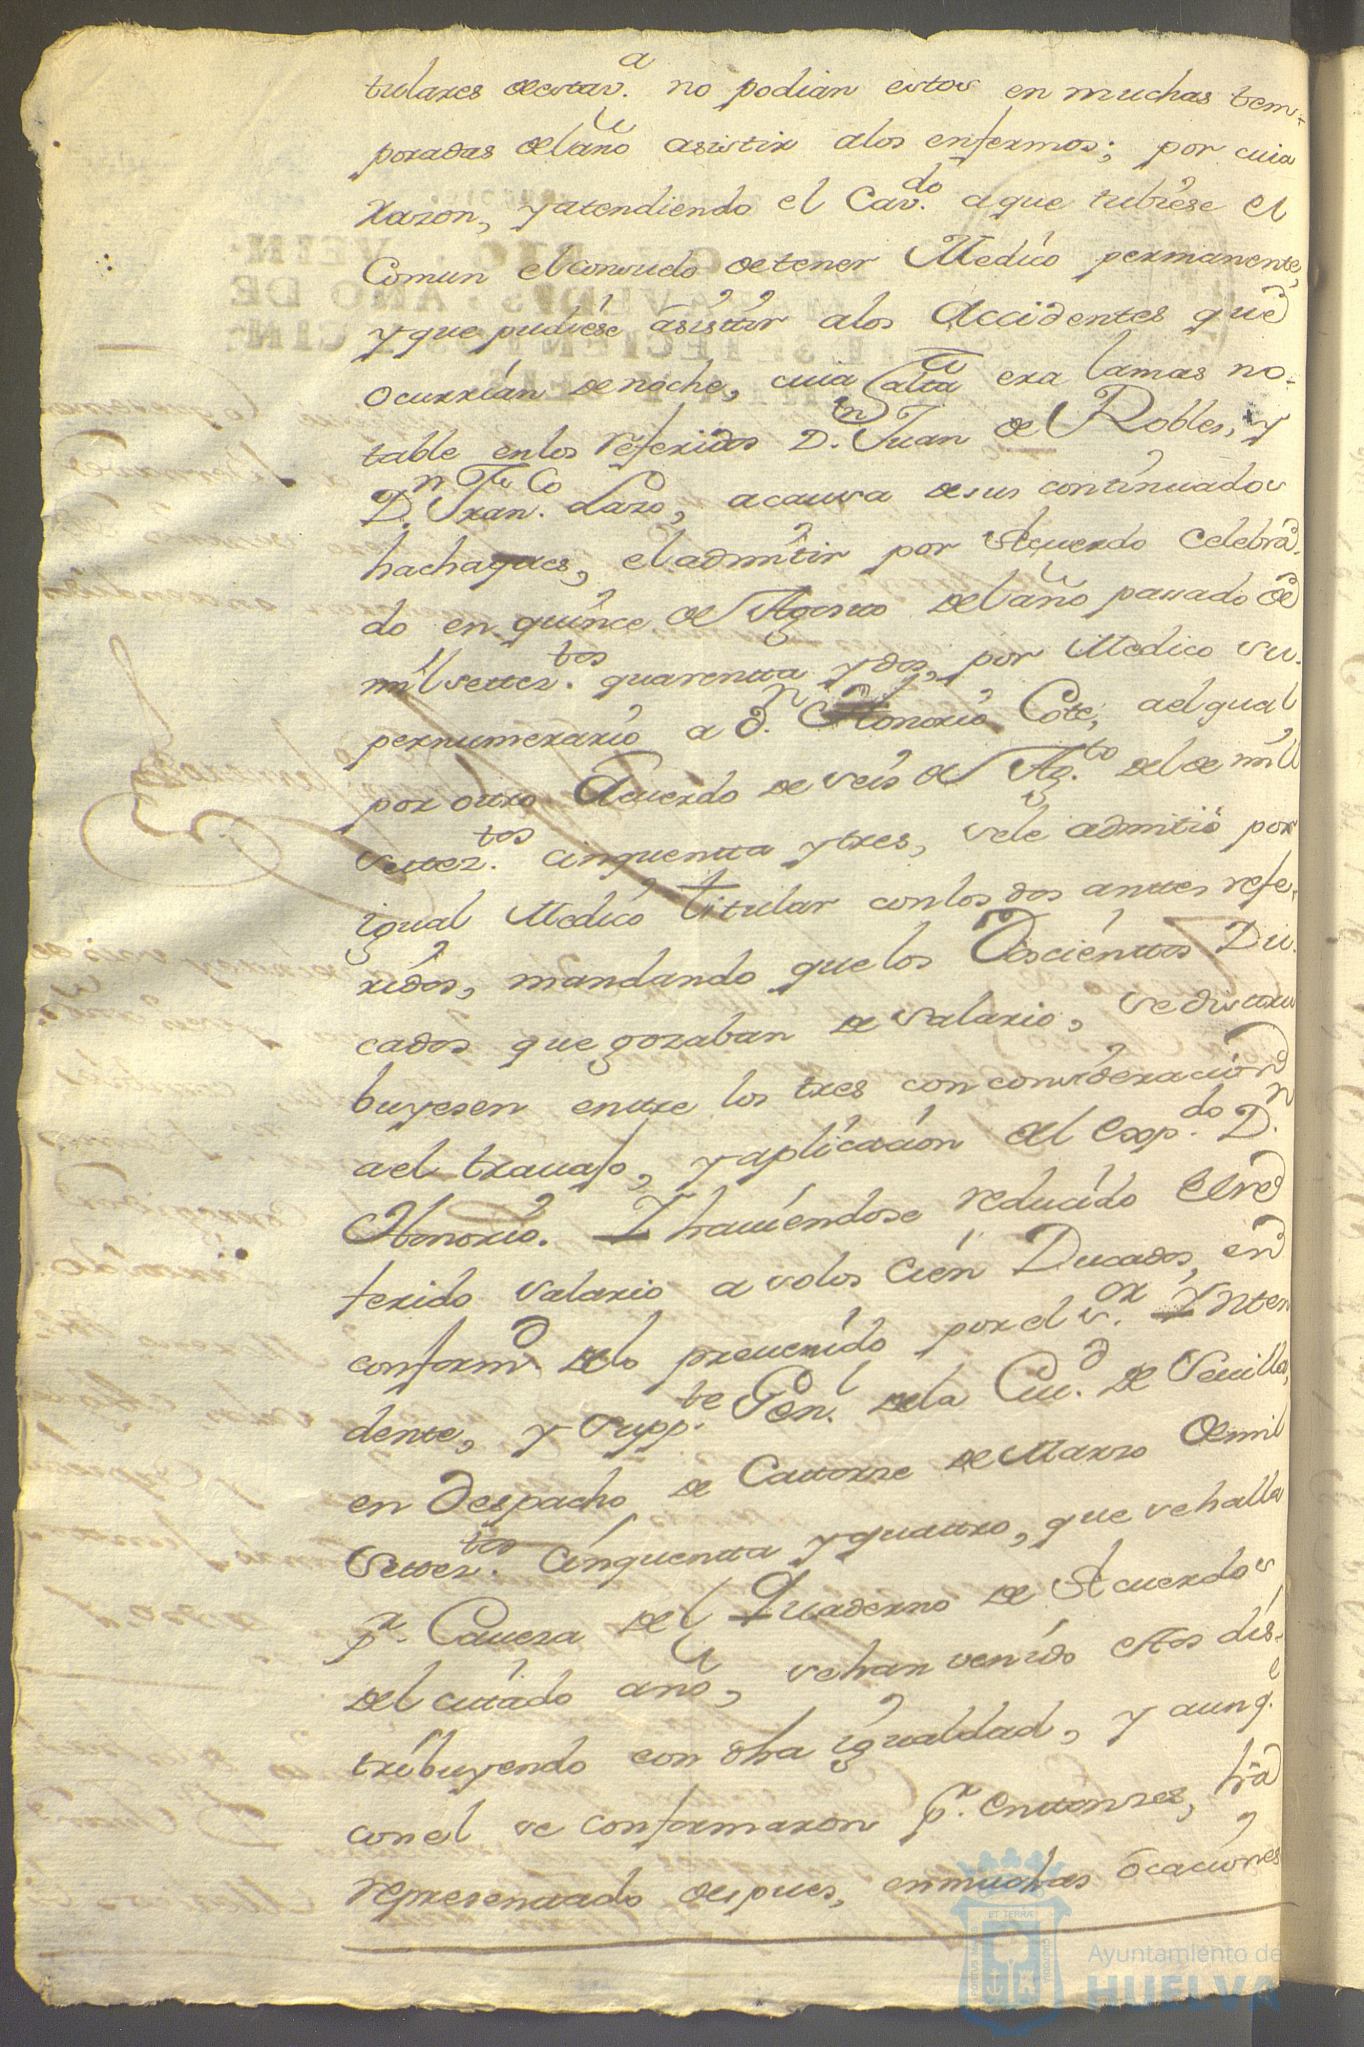 tulares deesta v.ᵃ no podian estos en muchas tem-
poradas del año asistir alos enfermos; por cuia
razon, y atendiendo el Cav.ᵈᵒ aque tubiese el
Comun el consuelo detener Medico permanente,
y que pudiese asistir alos Accidentes que
ocurrian denoche, cuia falta era lamas no-
table enlos referidos D.ⁿ Juan de Robles, y
D.ⁿ Fran.ᶜᵒ Lazo, acausa desus continuados
hachaques, el admitir por Acuerdo Celebra-
do en quince de Agosto del año pasado de
mil settez.ᵗᵒˢ quarentta y dos, por Medico su-
pernumerario a d.ⁿ Honorio Cote, aelqual
por outro Acuerdo de seis de Ag.ᵗᵒ del de mill
settez.ᵗᵒˢ cinquentta ytres, sele admitió por
igual Medico titular conlos dos anttes refe-
ridos, mandando quelos Doscienttos Du-
cados que gozaban de salario, se distri-
buyesen enttre los tres con consideracion
ael travajo, y aplicacion del exp.ᵈᵒ D.ⁿ
Honorio. Y haviendose reducido el re-
ferido salario a solos Cien Ducados, en
conformᵈ delo prevenido por el s.ᵒʳ Inten
dente, y Supp.ᵗᵉ Gen.ˡ dela Ciu.ᵈ de Sevilla,
en Despacho de Cattorze de Marzo de mil
settez.ᵗᵒˢ cinquentta yquattro, que sehalla
p.ʳ Caveza del Quaderno de Acuerdos
del cittado año, sehan venido estos dis-
tribuyendo con dha igualdad, y aunq.ᵉ
conel se conformaron p.ʳ enttonzes, ha
representtado despues, enmuchas ocaciones
Ayuntamiento de
HUELVA